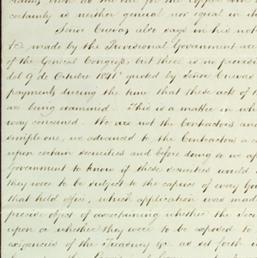 certainly is neither general nor legal in its
Señor Cuevas also says in his not
&c. made by the Provisional Government are
of the General Congress, but there is no provision
del 9 de Octubre 1841 quoted by Señor Cuevas
payments during the time that these acts of the
are being examined. This is a matter in wh
way concerned. We are not the Contractors and
simple one, we advanced to the Contractors a
upon certain securities and before doing so we ap
Government to know if these securities would
they were to be subject to the caprice of every Gov
that held office, which application was mad
precise object of ascertaining whether the
upon or whether they were to be exposed to
exigencies of the Treasury &c. as set forth